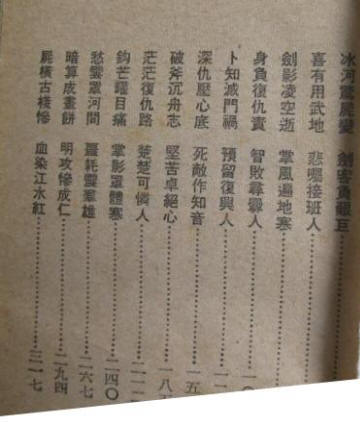 冰河驚屍變　負艱巨
喜有用武地　悲囑接班人
劍影凌空逝　掌風遍地塞
身負復仇責　智敗尋釁人
卜知滅門禍　預留復興人
深仇壓心底　死敵作知音……一五
破斧沉舟志　堅苦卓絕心……一八
茫茫復仇路　楚楚可憐人
鈎芒曜目痛　掌影罩體塞……二四〇
愁雲罩河間　噩耗震羣雄……二六七
暗算成畫餅　明攻慘成仁……二九四
屍橫古棧慘　血染江水紅……三一七